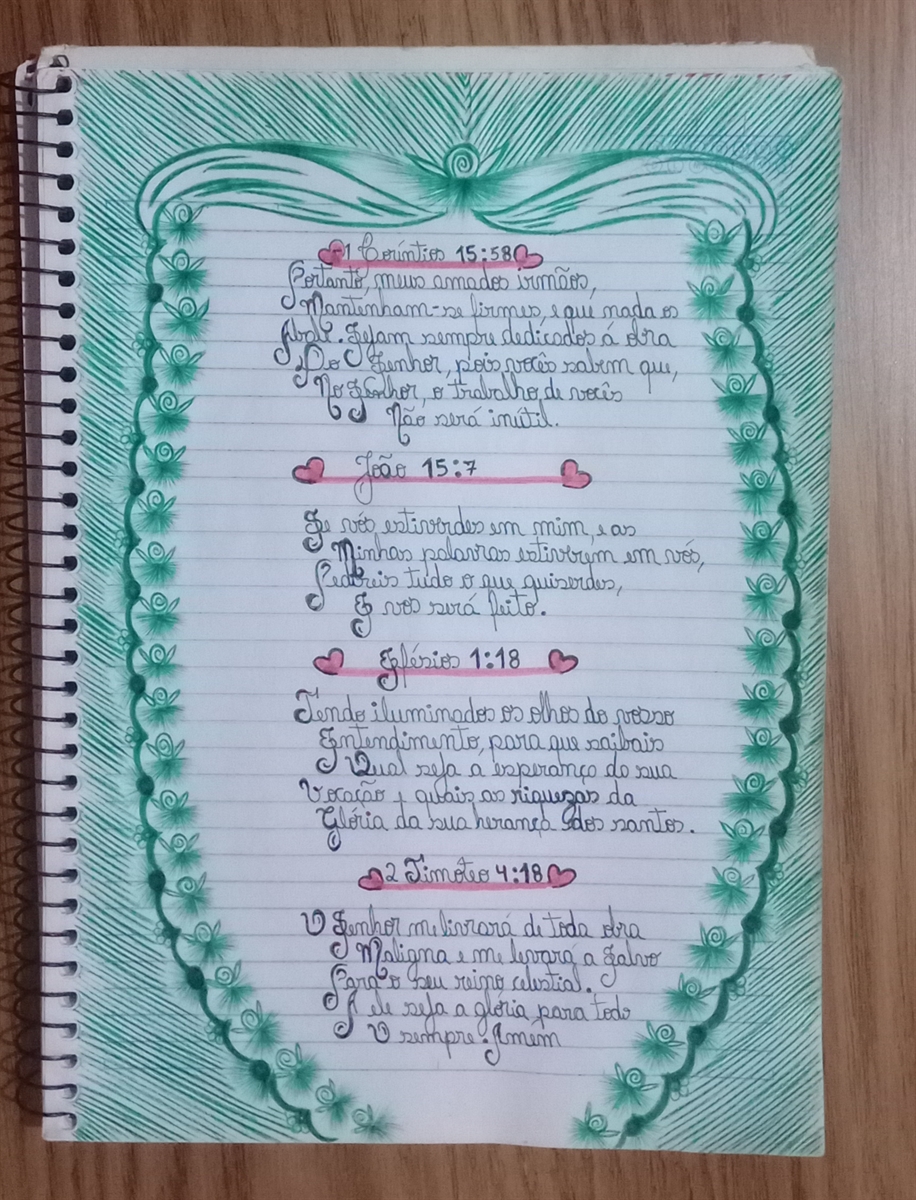 1 Coríntios 15:58
Portanto, meus amados irmãos,
Mantenham-se firmes, e que nada os
Abale. Sejam sempre dedicados á obra
Do Senhor, pois vocês sabem que,
No Senhor, o trabalho de vocês
Não será inútil.
João 15:7
Se vós estiverdes em mim, e as
Minhas palavras estiverem em vós,
Pedireis tudo o que quiserdes,
E vos será feito.
Efésios 1:18
Tendo iluminados os olhos do vosso
Entendimento, para que saibais
Qual seja a esperança do sua
Vocação, quais as riquezas da
Glória da sua herança dos santos.
2 Timóteo 4:18
O Senhor me livrará de toda obra
Maligna e me levará a Salvo
Para o seu reino celestial.
A ele seja a glória para todo
O sempre. Amém